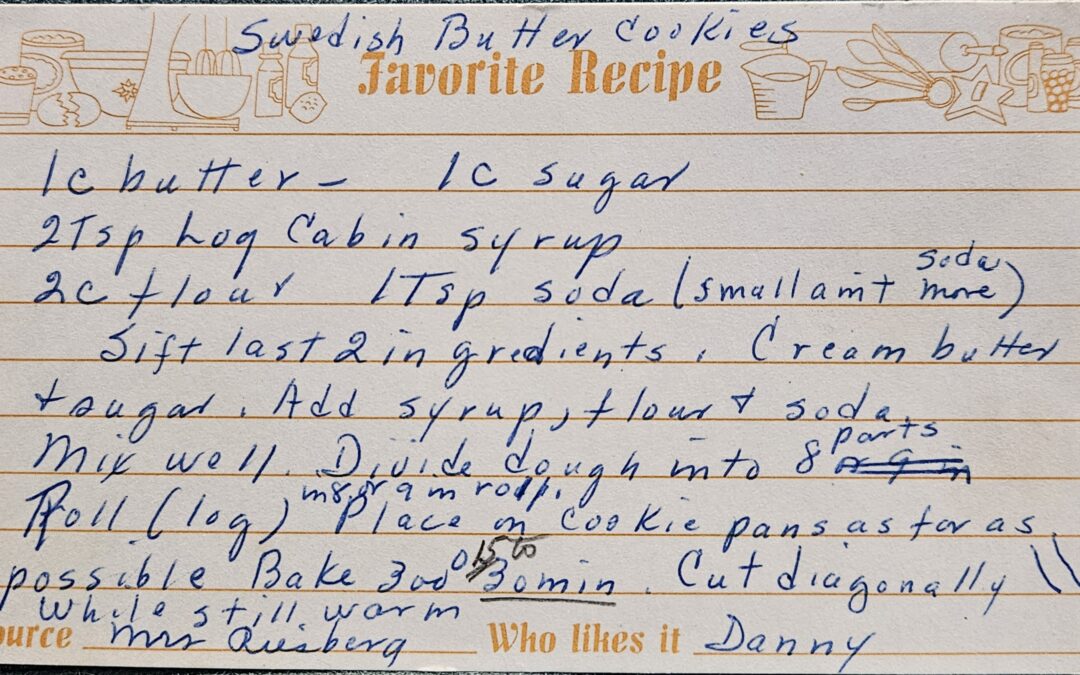 Swedish Butter Cookies
Favorite Recipe
1c butter - 1c sugar
2Tsp Log Cabin syrup
soda
2c flour 1Tsp soda (small amt more)
Sift last 2 ingredients. Cream butter
+ sugar. Add syrup, flour + soda.
parts
Mix well. Divide dough into 8
in 8 or 9 in roll.
Roll (log) Place on cookie pans as far as
15 to
possible Bake 300° 30min. Cut diagonally \\
while still warm
ource Mrs Who likes it Danny